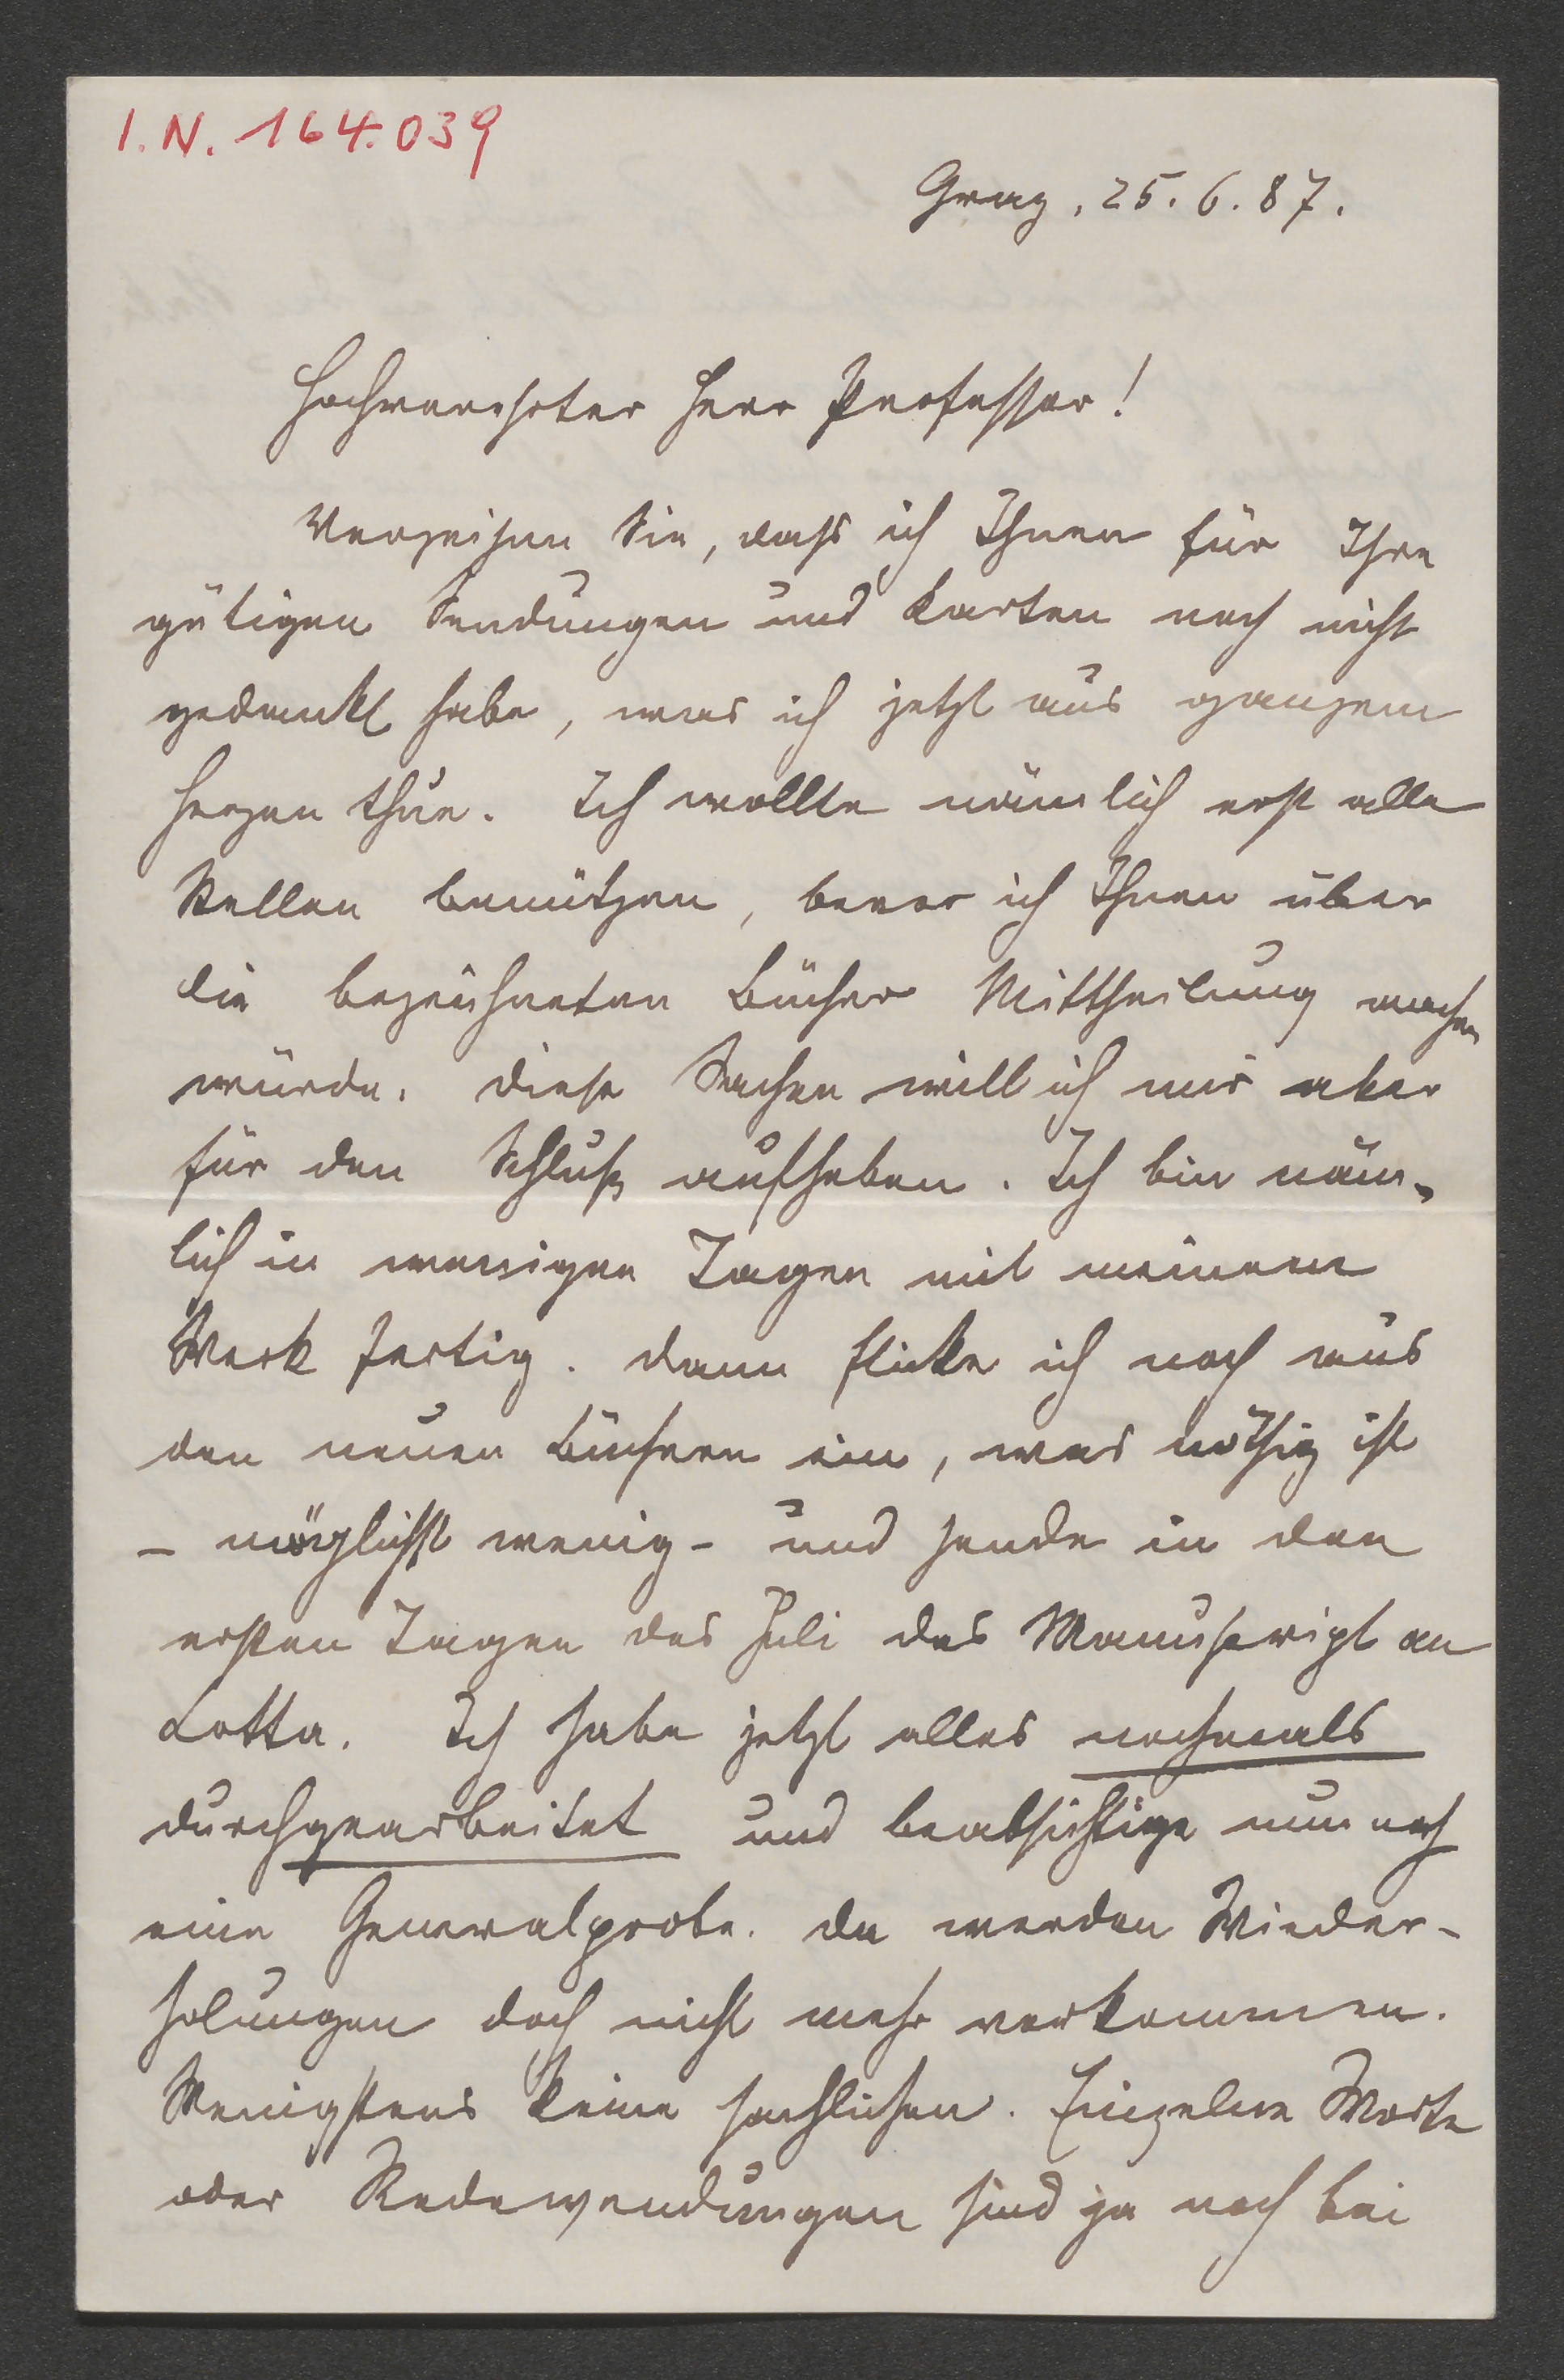 I.N. 164.039
Graz, 25. 6. 87.
Hochverehrter Herr Professor!
Verzeihen Sie, dass ich Ihnen für Ihre
gütigen Sendungen und Karten noch nicht
gedankt habe, was ich jetzt aus ganzem
Herzen thue. Ich wollte nämlich erst alle
Stellen benützen, bevor ich Ihnen über
die bezeichneten Bücher Mittheilung machen
würde. Diese Sachen will ich mir aber
für den Schluß aufheben. Ich bin näm-
lich in wenigen Tagen mit meinem
Werk fertig. Dann flicke ich noch aus
den neuen Büchern ein, was nöthig ist
- möglichst wenig - und sende in den
ersten Tagen des Juli das Manuscript an
Cotta. Ich habe jetzt alles nochmals
durchgearbeitet und beabsichtige nun noch
eine Generalprobe. Da werden Wieder-
holungen doch nicht mehr vorkommen.
Wenigstens keine sachlichen. Einzelne Worte
oder Redewendungen sind ja noch bei